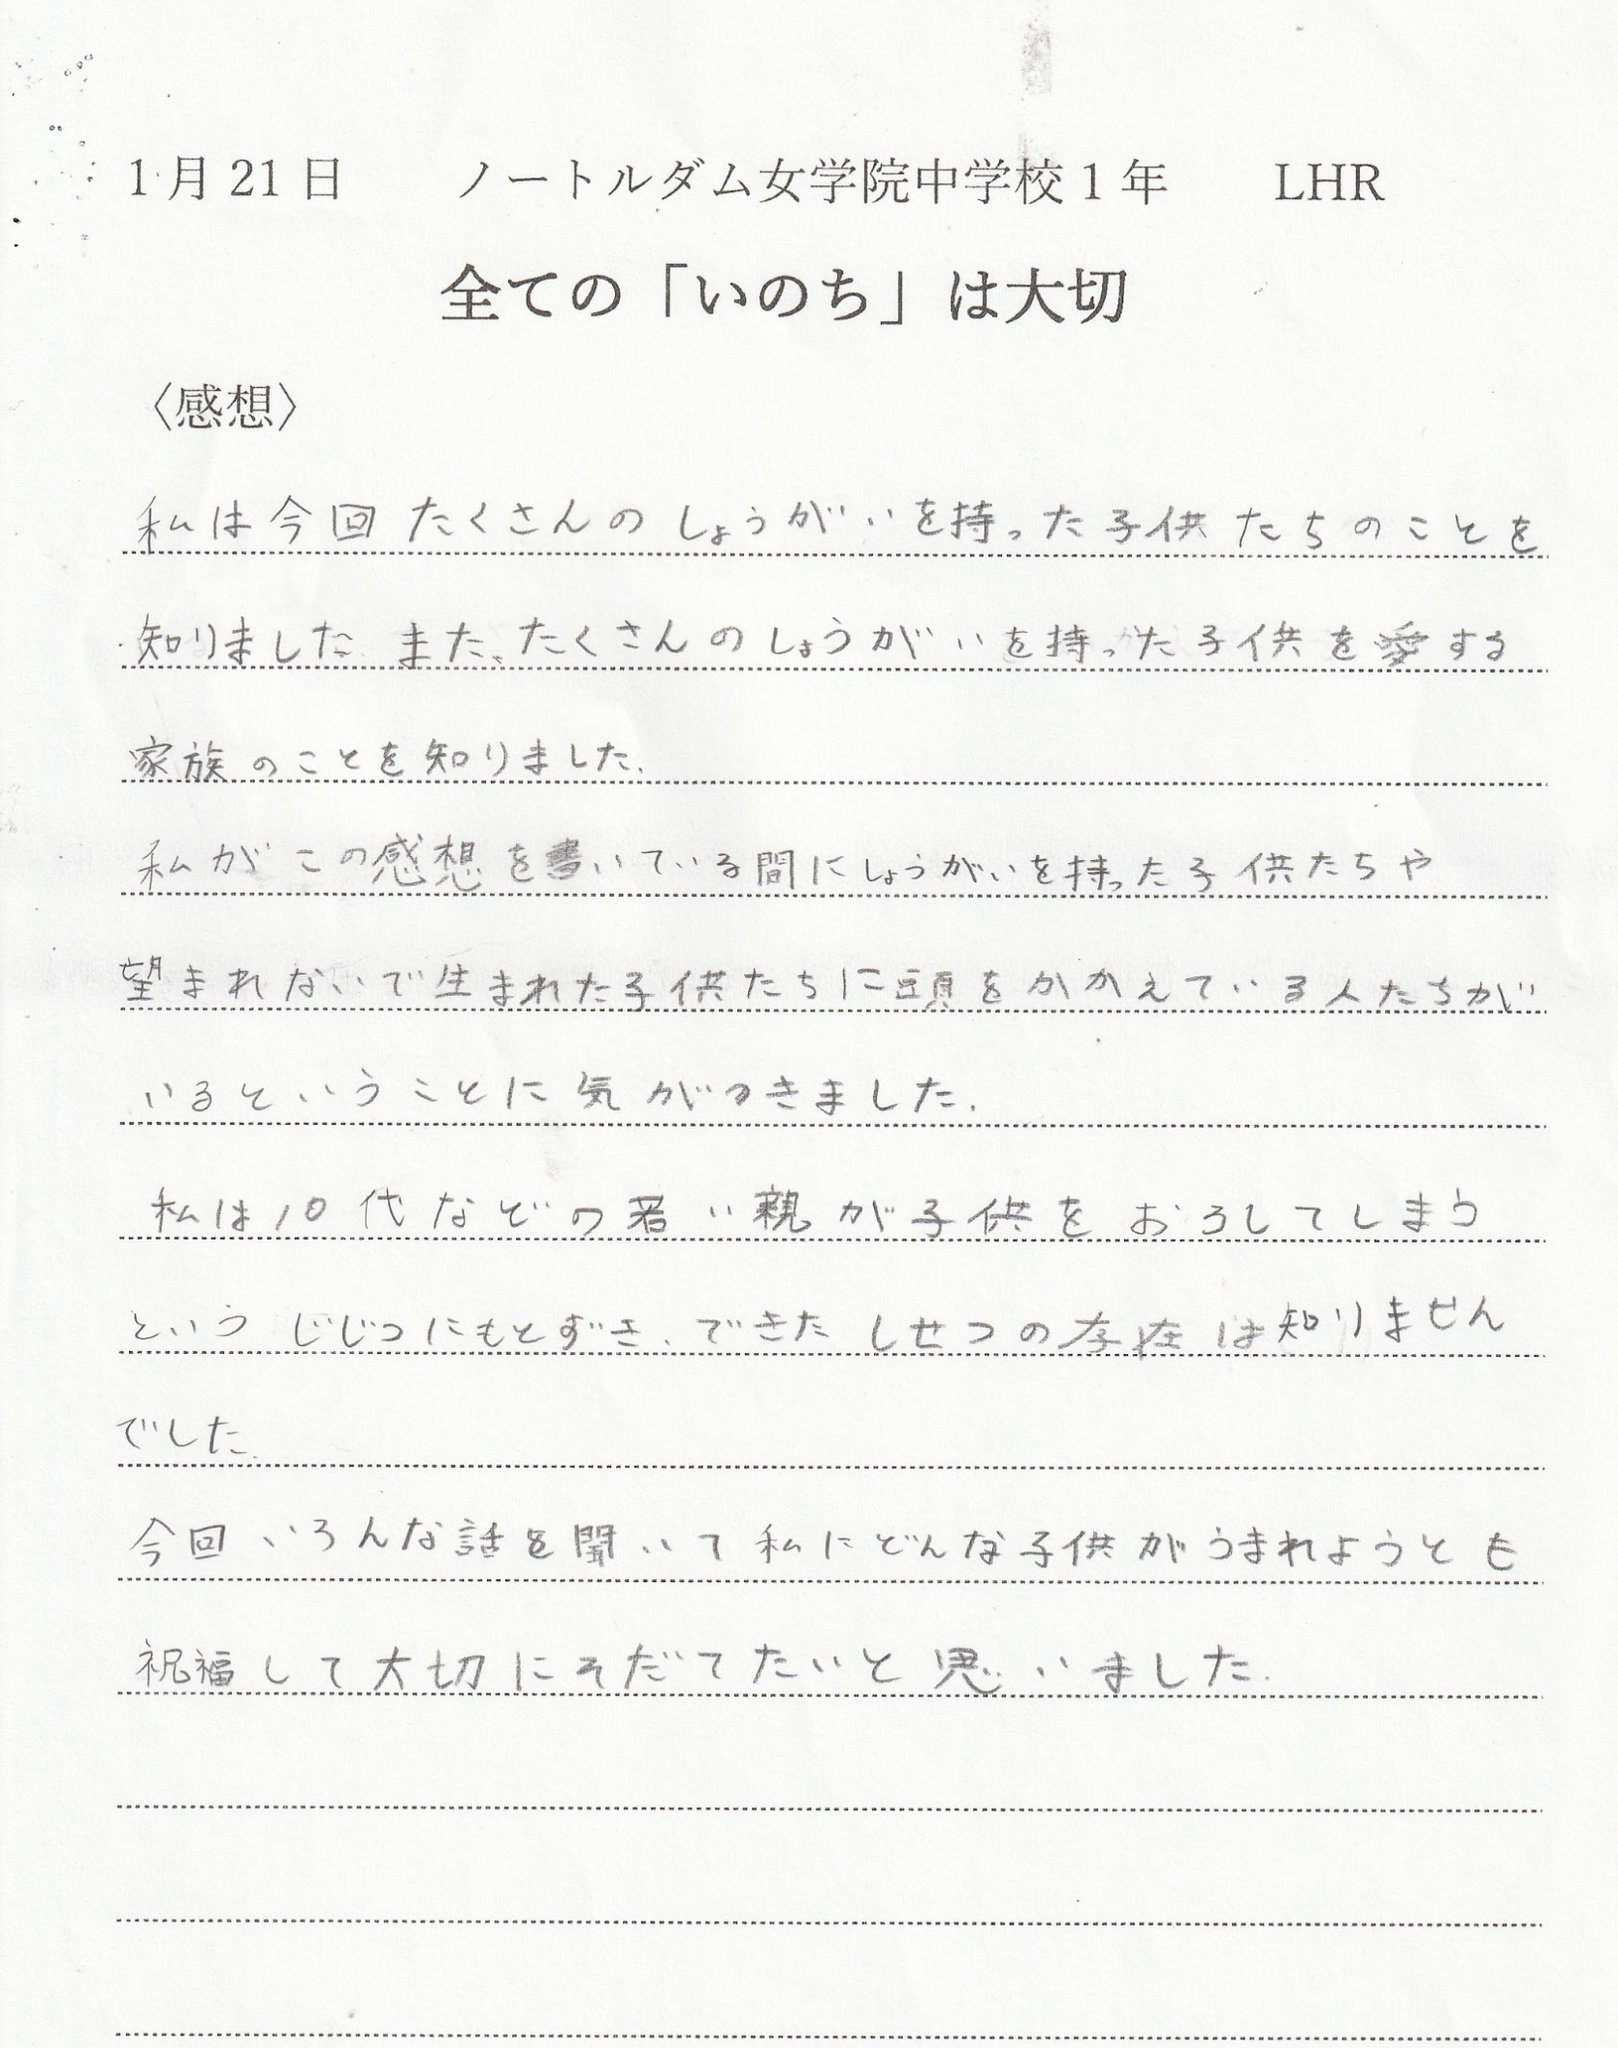 1月21日　ノートルダム女学院中学校1年　LHR
全ての「いのち」は大切
〈感想〉
私は今回たくさんのしょうがいを持った子供たちのことを
知りました。また、たくさんのしょうがいを持った子供を愛する
家族のことを知りました。
私がこの感想を書いている間にしょうがいを持った子供たちや
望まれないで生まれた子供たちに頭をかかえている人たちが
いるということに気がつきました。
私は10代などの若い親が子供をおろしてしまう
というじじつにもとずき、できたしせつの存在は知りません
でした。
今回いろんな話を聞いて私にどんな子供がうまれようとも
祝福して大切にそだてたいと思いました。